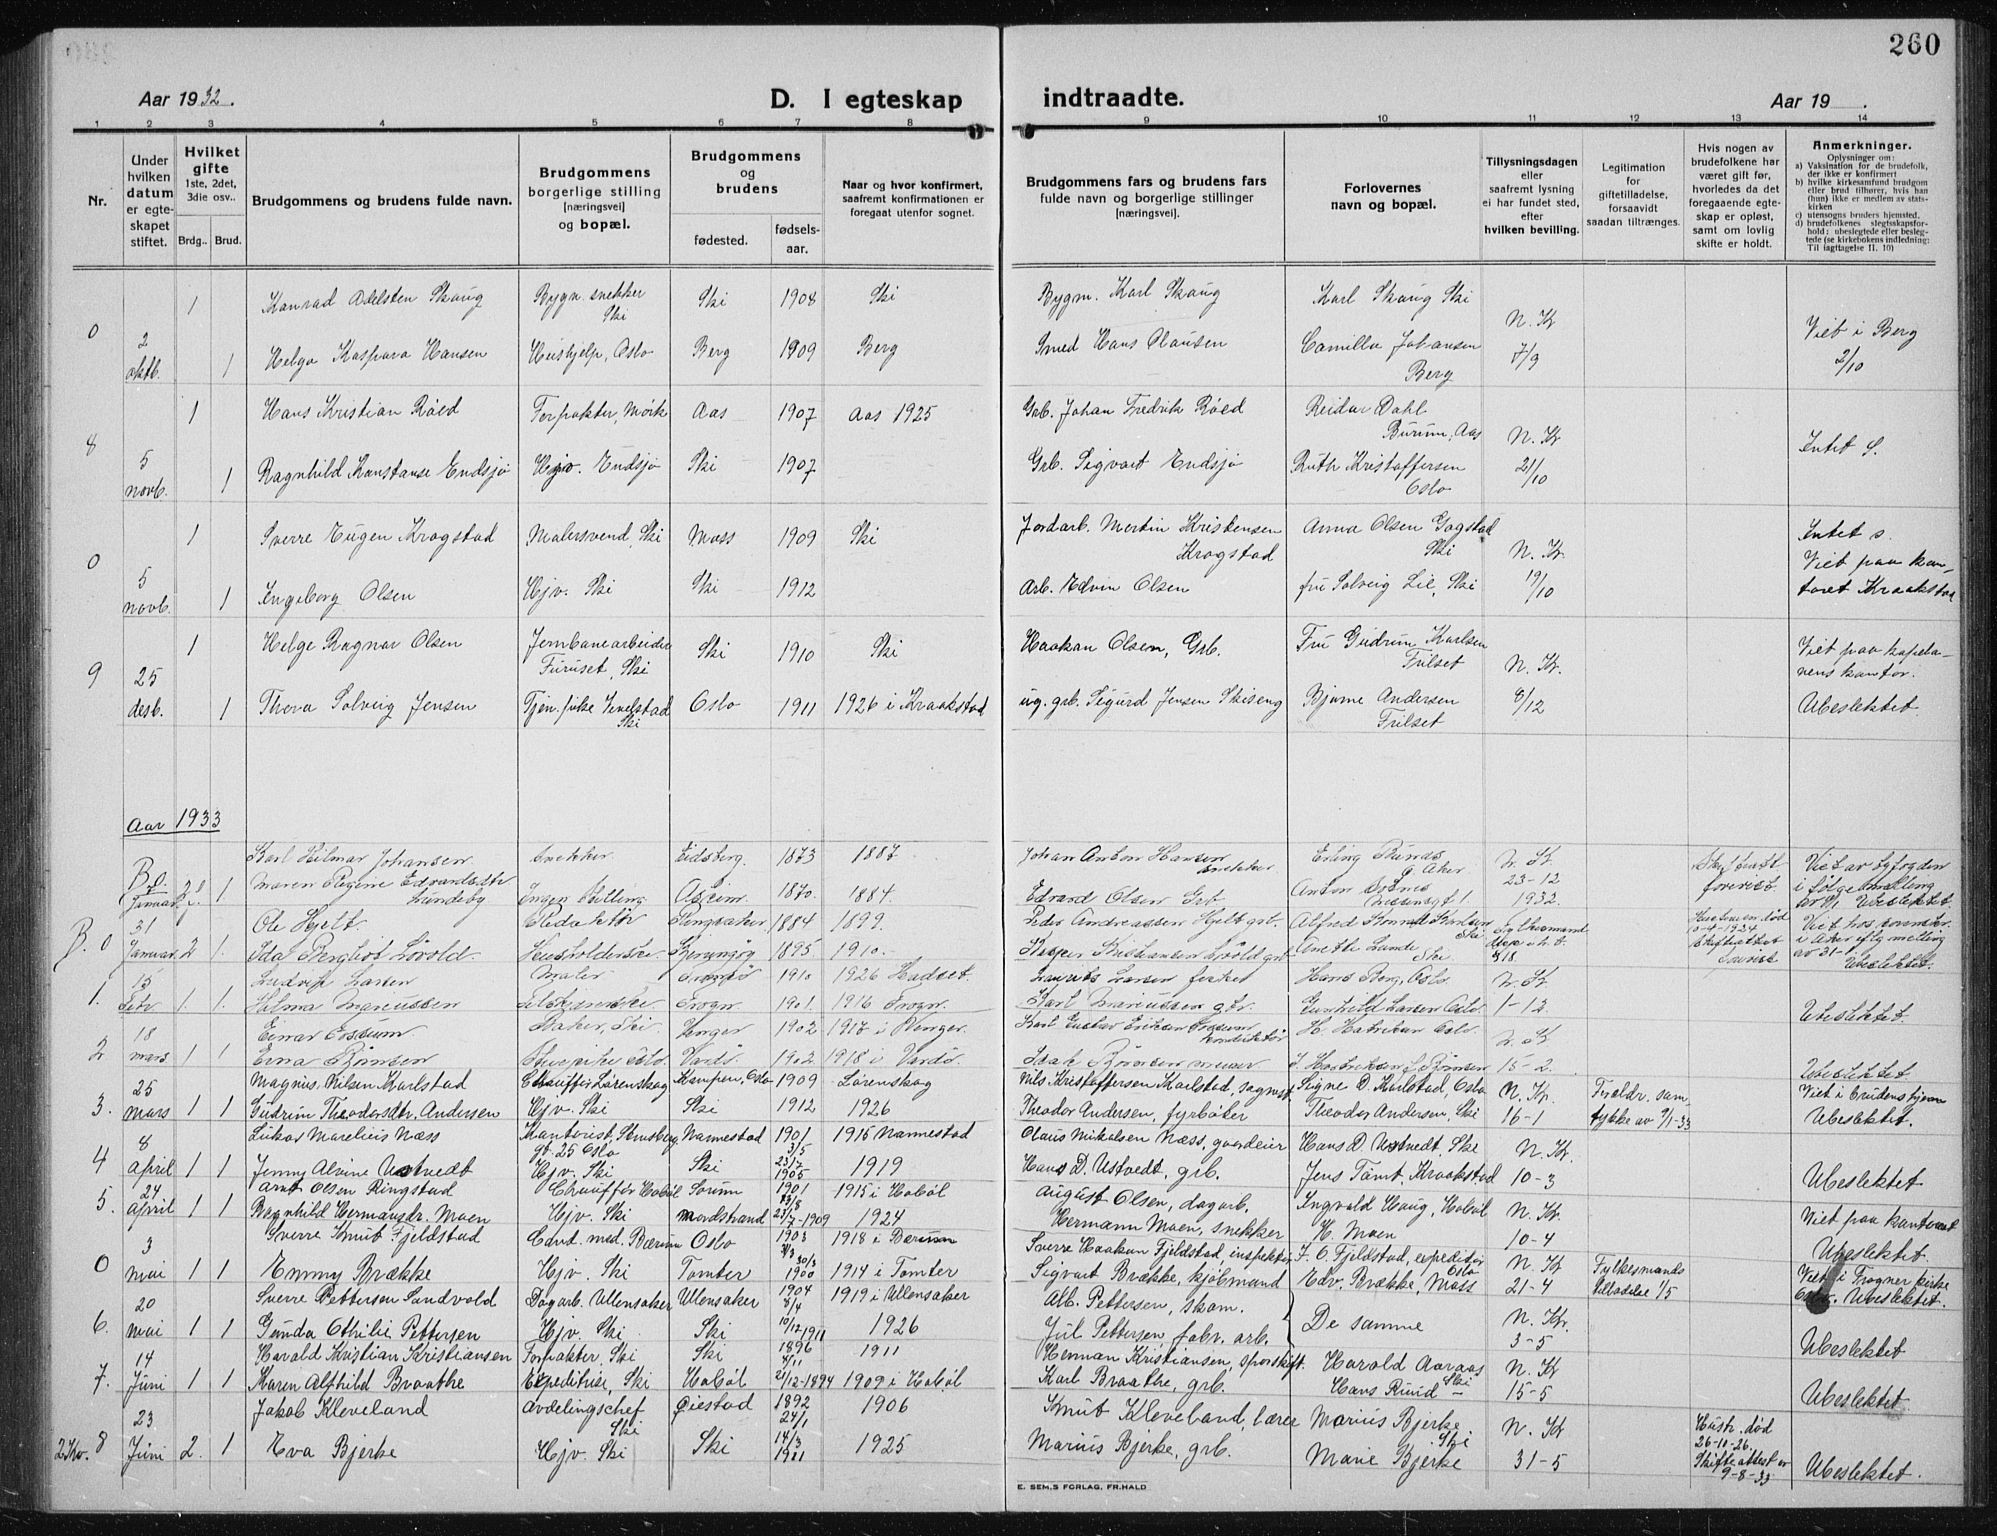 260
Aar 1932.
D. I egteskap indtraadte.
Aar 19    .
1 2 3 4 5 6 7 8 9 10 11 12 13 14
Nr.
Under hvilken datum er egte-skapet stiftet.
Hvilket gifte 1ste, 2det, 3die osv..
Brdg.. Brud.
Brudgommens og brudens fulde navn.
Brudgommens borgerlige stilling [næringsvei] og bopæl.
Brudgommens og brudens
fødested. fødsels-aar.
Naar og hvor konfirmert, saafremt konfirmationen er foregaat utenfor sognet.
Brudgommens fars og brudens fars fulde navn og borgerlige stillinger [næringsvei].
Forlovernes navn og bopæl.
Tillysningsdagen eller saafremt lysning ei har fundet sted, efter hvilken bevilling.
Legitimation for giftetilladelse, forsaavidt saadan tiltrænges.
Hvis nogen av brudefolkene har været gift før, hvorledes da det foregaaende egte-skap er opløst, samt om lovlig skifte er holdt.
Anmerkninger.
Oplysninger om:
a) Vaksination for de brudefolk, der ikke er konfirmert
b) hvilke kirkesamfund brudgom eller brud tilhører, hvis han (hun) ikke er medlem av stats-kirken
c) utensogns bruders hjemsted.
d) brudefolkenes slegtskapsfor-hold: ubeslegtede eller besleg-tede (se kirkebokens indledning: Til iagttagelse II. 10)
1 Konrad Adelsten Skaug Bygn. snekker Ski Ski 1908 Ski Bygm. Karl Skaug Karl Skaug Ski
0 2 oktb. 1 Helga Kaspara Hansen Hushjelp, Oslo Berg 1909 Berg Smed Hans Clausen Camilla Johansen Berg N. Kr 7/9 Viet i Berg 2/10
1 Hans Kristian Röed Forpakter, Mörk Aas 1907 Aas 1925 Grb. Johan Fredrik Röed Reidar Dahl Burum, Aas
8 5 novb. 1 Ragnhild Konstanse Endsjö Hjv. Endsjö Ski 1907 Grb. Sigvart Endsjö Ruth Kristoffersen Oslo N. Kr 21/10 Intet s.
1 Sverre Eugen Kragstad Malersvend, Ski Moss 1909 Ski Jordarb. Martin Kristensen Kragstad Anna Olsen Gogstad Ski
0 5 novb. 1 Ingeborg Olsen Hjv. Ski Ski 1912 Arb. Edvin Olsen fru Solveig Lie, Ski N. Kr. 19/10 Intet s. Viet paa kon-toret Kraakstad
1 Helge Ragnar Olsen Jernbanearbeider Furuset, Ski Ski 1910 Ski Haakon Olsen, Grb. Fru Gudrun Karlsen Frilset
9 25 desb. 1 Thora Solveig Jensen Tjen. pike Vevelstad Ski Oslo 1911 1926 i Kraakstad ug. grb. Sigurd Jensen Skiseng Bjarne Andersen Frilset N. Kr. 8/12 Viet paa kapela-nens kontor. Ubeslektet.
Aar 1933
Karl Hilmar Johansen Snekker Eidsberg. 1873 1887 Johan Anton Hansen snekker Erling Runås Aker
B. 0. Januar 1 Maren Regine Edvardsdtr Lundeby Ingen stilling Askim 1870. 1884. Edvard Olsen Grb Anton N. Kr. 23-12 1932. Skifteatt forevist. Viet av byfogden i Ubeslektet
31 Ole Hjelt Redaktör Ringsaker 1884 1899. Peder Andreassen Hjelt grb. Alfred Ski
B. 0 Januar 2 1 Ida Bergliot Lövold Husholderske 1895 1910. Lövold grb Anette Lunde Ski Fylkesmand Hustruen död 5-4-1924 Skifteattest forevist Viet hos i Aker eftg melding av 31- Ubeslektet.
15 Ludvig Larsen Maler 1910 1926 Hadsel Laurits Larsen fisker Hans Berg, Oslo
1. Febr 1 1 Halma Marcussen Frogn. 1901 1916 Frogn. Karl Marcussen Gunhild Larsen Oslo N. Kr 1-12 Ubeslektet.
18 Einar Essum Baker, Ski Vinger 1902 1917 i Vinger. Karl Gustav Eriksen Essum konditor H. Oslo.
2 mars 1 1 Erna Rönsen Vardö. 1902 1918 i Vardö. Isak Rönsen murer N. Kr 15-2. Ubeslektet
25 Magnus Nilsen Karlstad Chaufför Lørenskog Kampen, Oslo 1909 Lørenskog Nils Kristoffersen Karlstad, sagmest. Signe D. Karlstad, Oslo
3. mars 1 1 Gudrun Theodorsdtr. Andersen Hjv. Ski Ski 1912 1926 Theodor Andersen, fyrböter Theodor Andersen, Ski N. Kr. 16-1 Foreldr. sam tykke av 9/1-33 Viet i brudens hjem Ubeslektet.
8 Lukas Marelius Næss Kontorist, gt. 25 Oslo Nannestad 1901 3/5 1915 Nannestad Claus Mikalsen Næss, gaardeier Hans D. Ustvedt Ski
4 april 1 1 Jenny Alvine Ustvedt Hjv. Ski Ski 23/7 1905 1919 Hans D. Ustvedt, grb. Jens Tömt, Kraakstad N. Kr. 10-3 Ubeslektet
24 Arnt Olsen Ringstad Chauffør Hobøl Sørum 1901 1915 i Hobøl August Olsen, dagarb. Ingvald Haug, Hobøl
5. april 1 1 Ragnhild Hermansdtr. Moen Hjv. Ski Nordstrand 27/7-1909 1924 Hermann Moen, snekker H. Moen N. Kr. 10-4 Viet paa kontoret Ubeslektet.
3 Sverre Knut Fjeldstad Cand. med. Bærum Oslo 1903 1918 i Bærum Sverre Haakon Fjeldstad, inspektör J. O. Fjeldstad, expeditör Oslo
0 mai 1 1 Emmy Brække Hjv. Ski Tomter 30/3 1900 1914 i Tomter Sigvart Brække, kjöbmand Edv. Brække, Moss N. Kr 21-4 Fylkesmands tilladelse 1/5 Viet i Frogner kirke Oslo. Ubeslektet.
20 Sverre Pettersen Sandvold Dagarb. Ullensaker Ullensaker 1904 8/4 1919 i Ullensaker Alb. Pettersen, skom.
6. mai 1 1 Gunda Othilie Pettersen Hjv. Ski Ski 10/12 1911 1926 Jul. Pettersen fabr. arb. De samme N. Kr. 3-5 Ubeslektet
14 Harald Kristian Kristiansen Forpakter, Ski Ski 1896 4/11 1911 Herman Kristiansen, Harald Aaraas Ski
7. Juni 1 1 Karen Alfhild Braathe Expeditrise, Ski Hobøl 21/12-1894 1909 i Hobøl Karl Braathe, grb. Hans Rund – N. Kr 15-5 Ubeslektet
23 Jakob Kleveland Avdelingschef Ski Øiestad 1892 24/1 1906 Knut Kleveland, lærer Marius Bjerke Ski
2 Kv. 8 Juni 2. 1 Eva Bjerke Hjv. Ski Ski 14/3 1911 1925 Marius Bjerke, grb. Marie Bjerke N. Kr 31-5 Hustr. död 26-10-26. Skifteattest av 9-8-33 Ubeslektet.
E. SEM,S FORLAG, FR.HALD